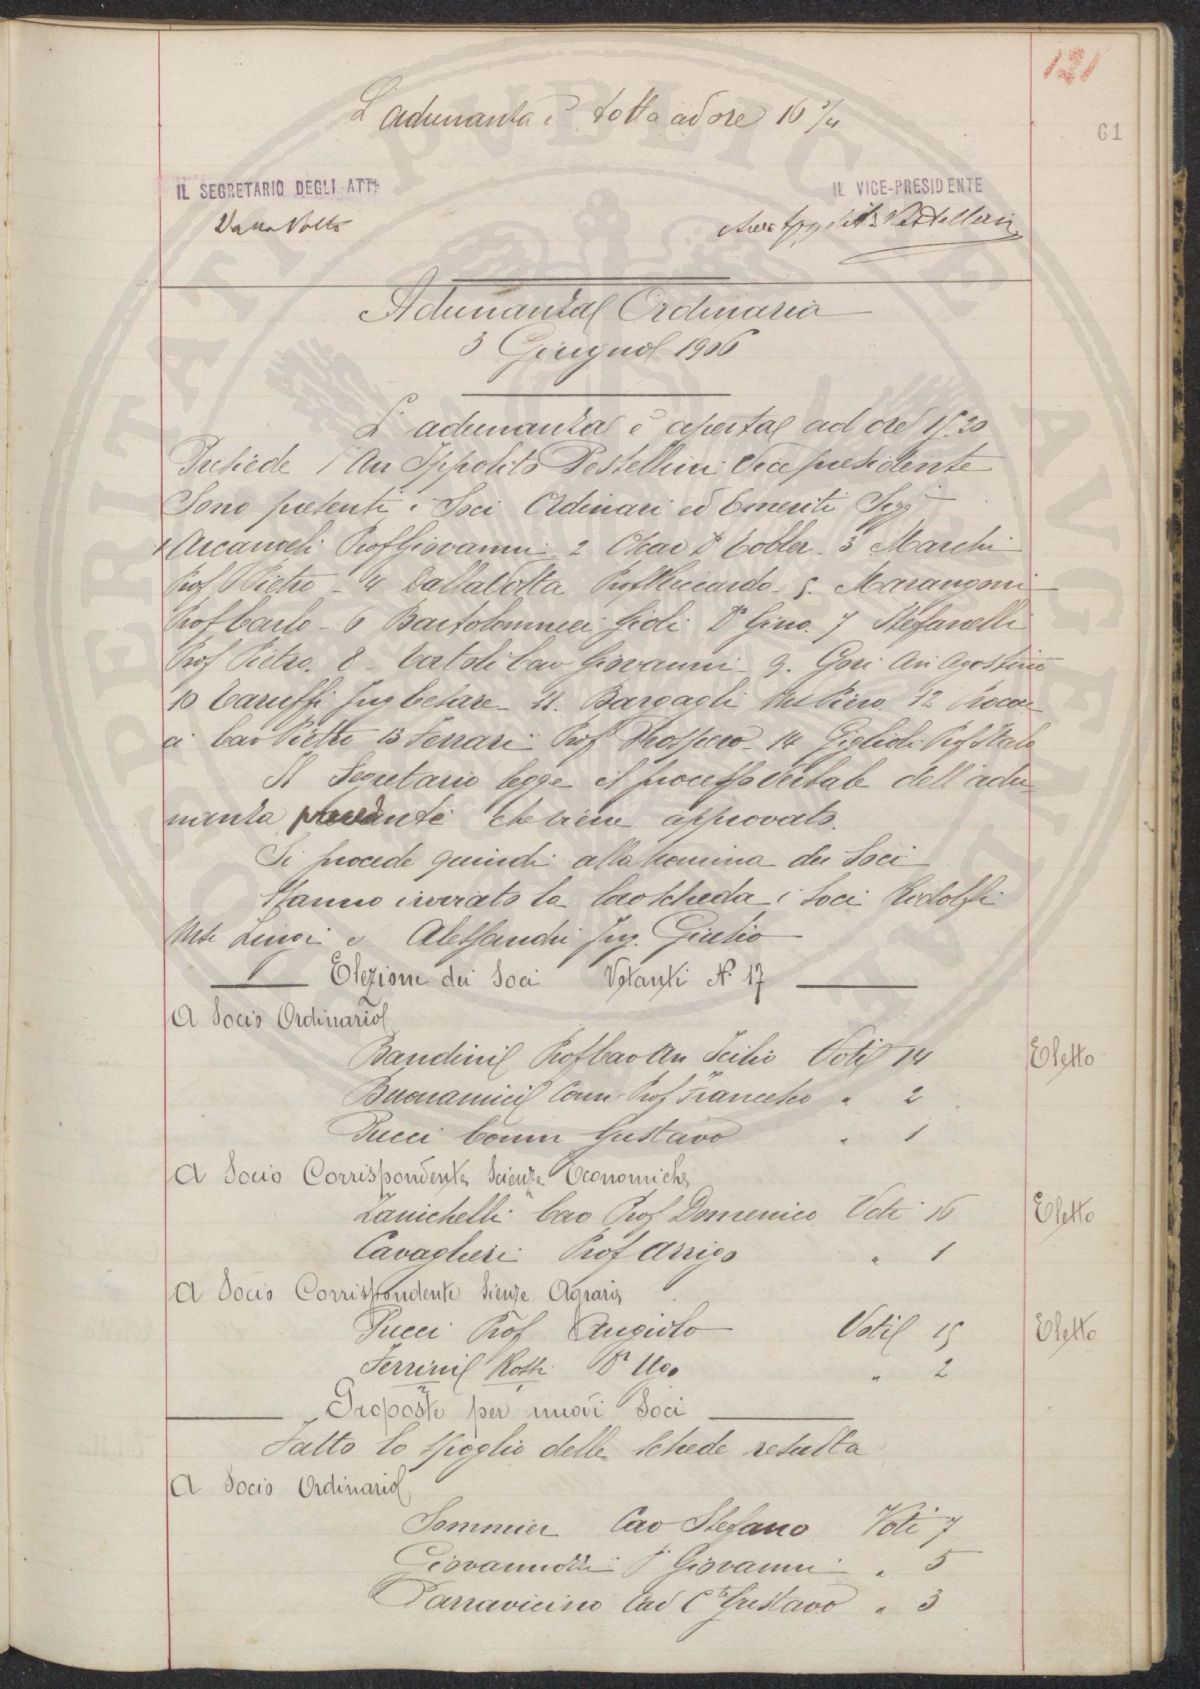 121
61
L'adunanza è tolta ad ore 16 3/4
IL SEGRETARIO DEGLI ATTI
IL VICE-PRESIDENTE
Dalla Volta
Pestellini
Adunanza Ordinaria
3 Giugno 1906
L'adunanza è aperta ad ore 15.20
Presiede l'Avv Ippolito Pestellini Vicepresidente
Sono presenti i Soci Ordinari ed Emeriti Sigg
1 Arcangeli Prof Giovanni 2 Oscar Dr Tobler - 3 Marchi
Prof Pietro - 4 Dallavolta Prof Riccardo - 5. Marangoni
Prof Carlo - 6 Bartolommei Gioli Dr Gino. 7 Stefanelli
Prof Pietro. 8 - Bertoli Cav Giovanni - 9. Gori Avv Agostino
10 Caruffi Ing Cesare - 11. Bargagli Piero 12
ci Cav Pietro 13 Ferrari Prof Prospero - 14 Giglioli Prof Italo
Il Segretario legge il processo verbale dell'adu
nanza precedente che viene approvato.
Si procede quindi alla nomina dei Soci
Hanno inviato la loro scheda i Soci Ridolfi
Mse Luigi e Alessandri Ing. Giulio
Elezione dei Soci Votanti N. 17
A Socio Ordinario
Bandini Prof Cav Avv Icilio Voti 14 Eletto
Buonamici Comm Prof Francesco " 2
Pucci Comm Gustavo " 1
A Socio Corrispondente Scienze Economiche
Zanichelli Cav Prof Domenico Voti 16 Eletto
Cavaglieri Prof Arrigo " 1
A Socio Corrispondente Sienze Agrarie
Pucci Prof Angiolo Voti 15 Eletto
Ferrini Rossi Dr Ugo " 2
Proposte per nuovi Soci
Fatto lo spoglio delle schede resulta
A Socio Ordinario
Sommier Cav Stefano Voti 7
Giovannozzi P Giovanni " 5
Parravicino Cav Cte Gustavo " 3